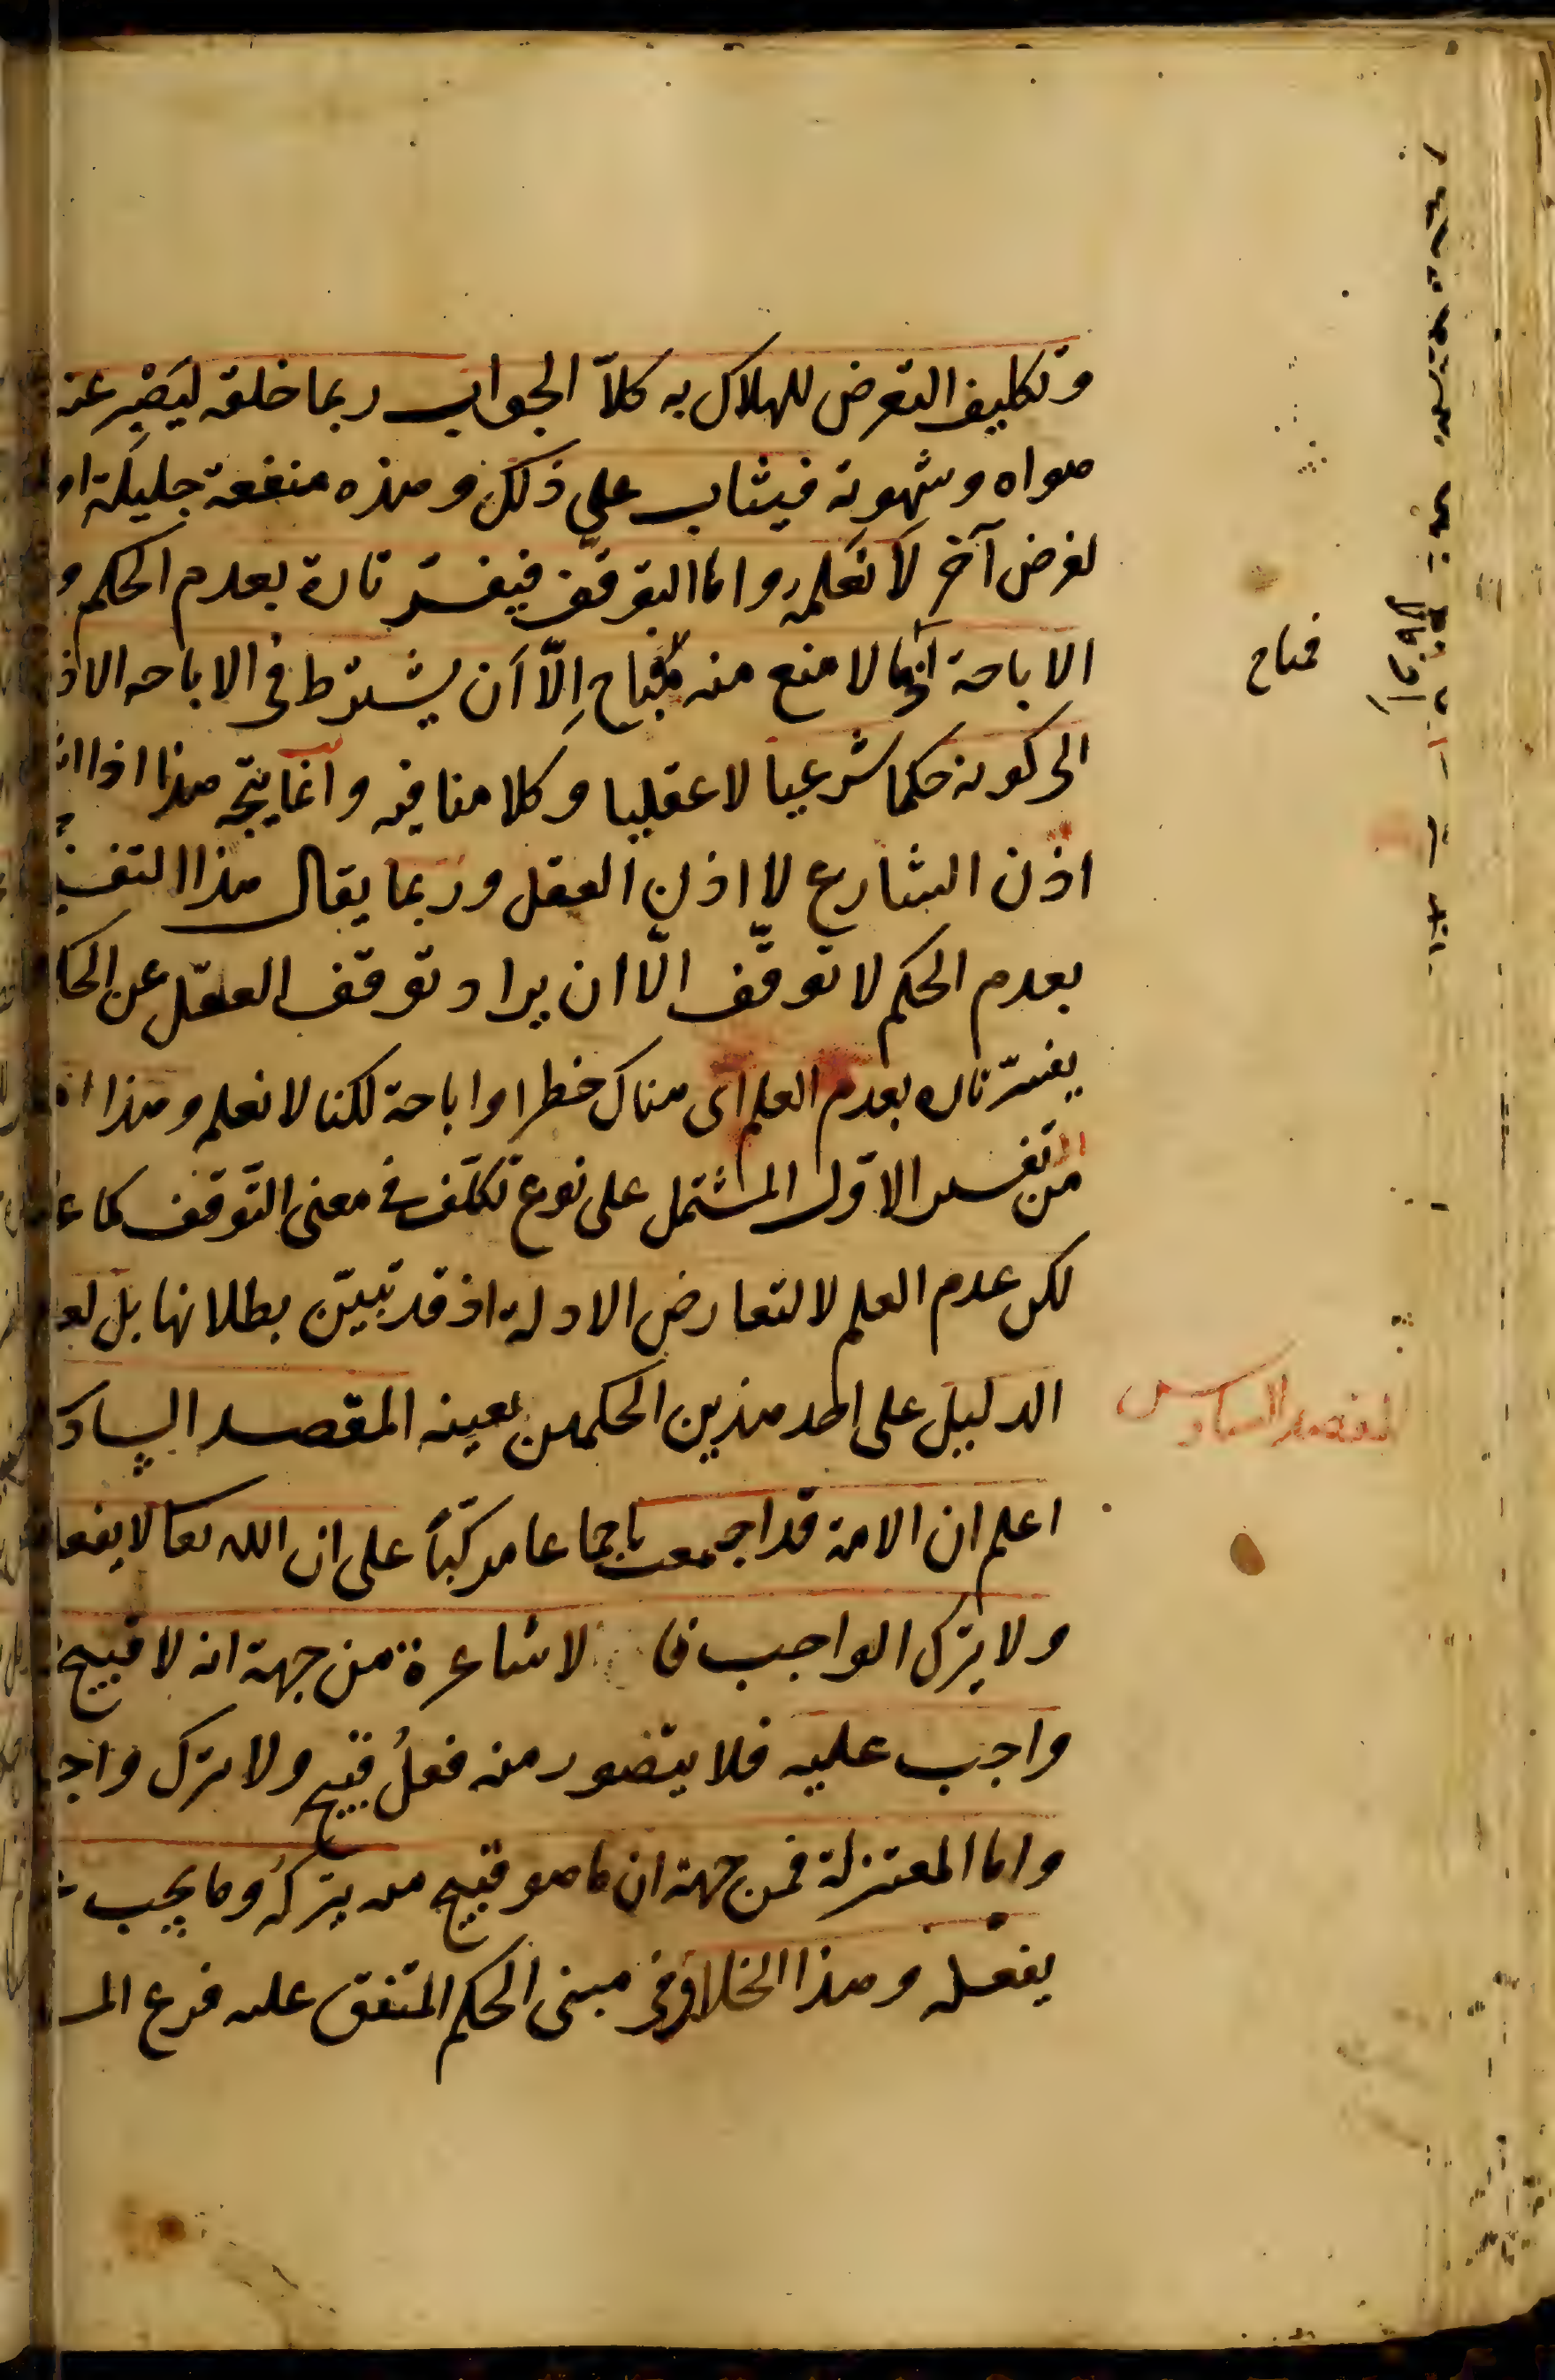 وتكليف التعرض للهلاك به كلاّ الجواب ربما خلقه ليَصْبِر عنه
هواه وشهوته فيثاب على ذلك وهذه منفعة جليلة او
لغرض آخر لا نعلمه واما التوقف فيفسّر تارة بعدم الحكم و
الاباحة اذ ما لا منع منه فمباح إلّا أن يشترط في الاباحه الاذ
الى كونه حكما شرعيا لا عقليا وكلامنا فيه وانما يتجه هذا اذا
اذن الشارع لا اذن العقل وربما يقال هذا التفسـ
بعدم الحكم لا توقّف الّا ان يراد توقف العقل عن الحكـ
يفسّر تاره بعدم العلم اى هناك حظر او اباحة لكنا لا نعلم وهذا
من تفسير الاوّل المشتمل على نوع تكلّف في معنى التّوقف كما
لكن عدم العلم لا لتعارض الادلة اذ قد تبيّن بطلانها بل لعـ
الدليل على احد هذين الحكمين بعينه المقصد السادس
اعلم ان الامة قد اجمعت اجماعا مركّباً على ان الله تعا لا يفعل
ولا يترك الواجب فا لاشاعرة من جهة انه لا قبيح
واجب عليه فلا يتصور منه فعلُ قبيح ولا ترك واجـ
واما المعتزلة فمن جهة ان ما هو قبيح منه يتركه وما يجب
يفعله وهذا الخلاف في مبنى الحكم المتفق عليه فرع المـ
فمباح
المقصد السادس